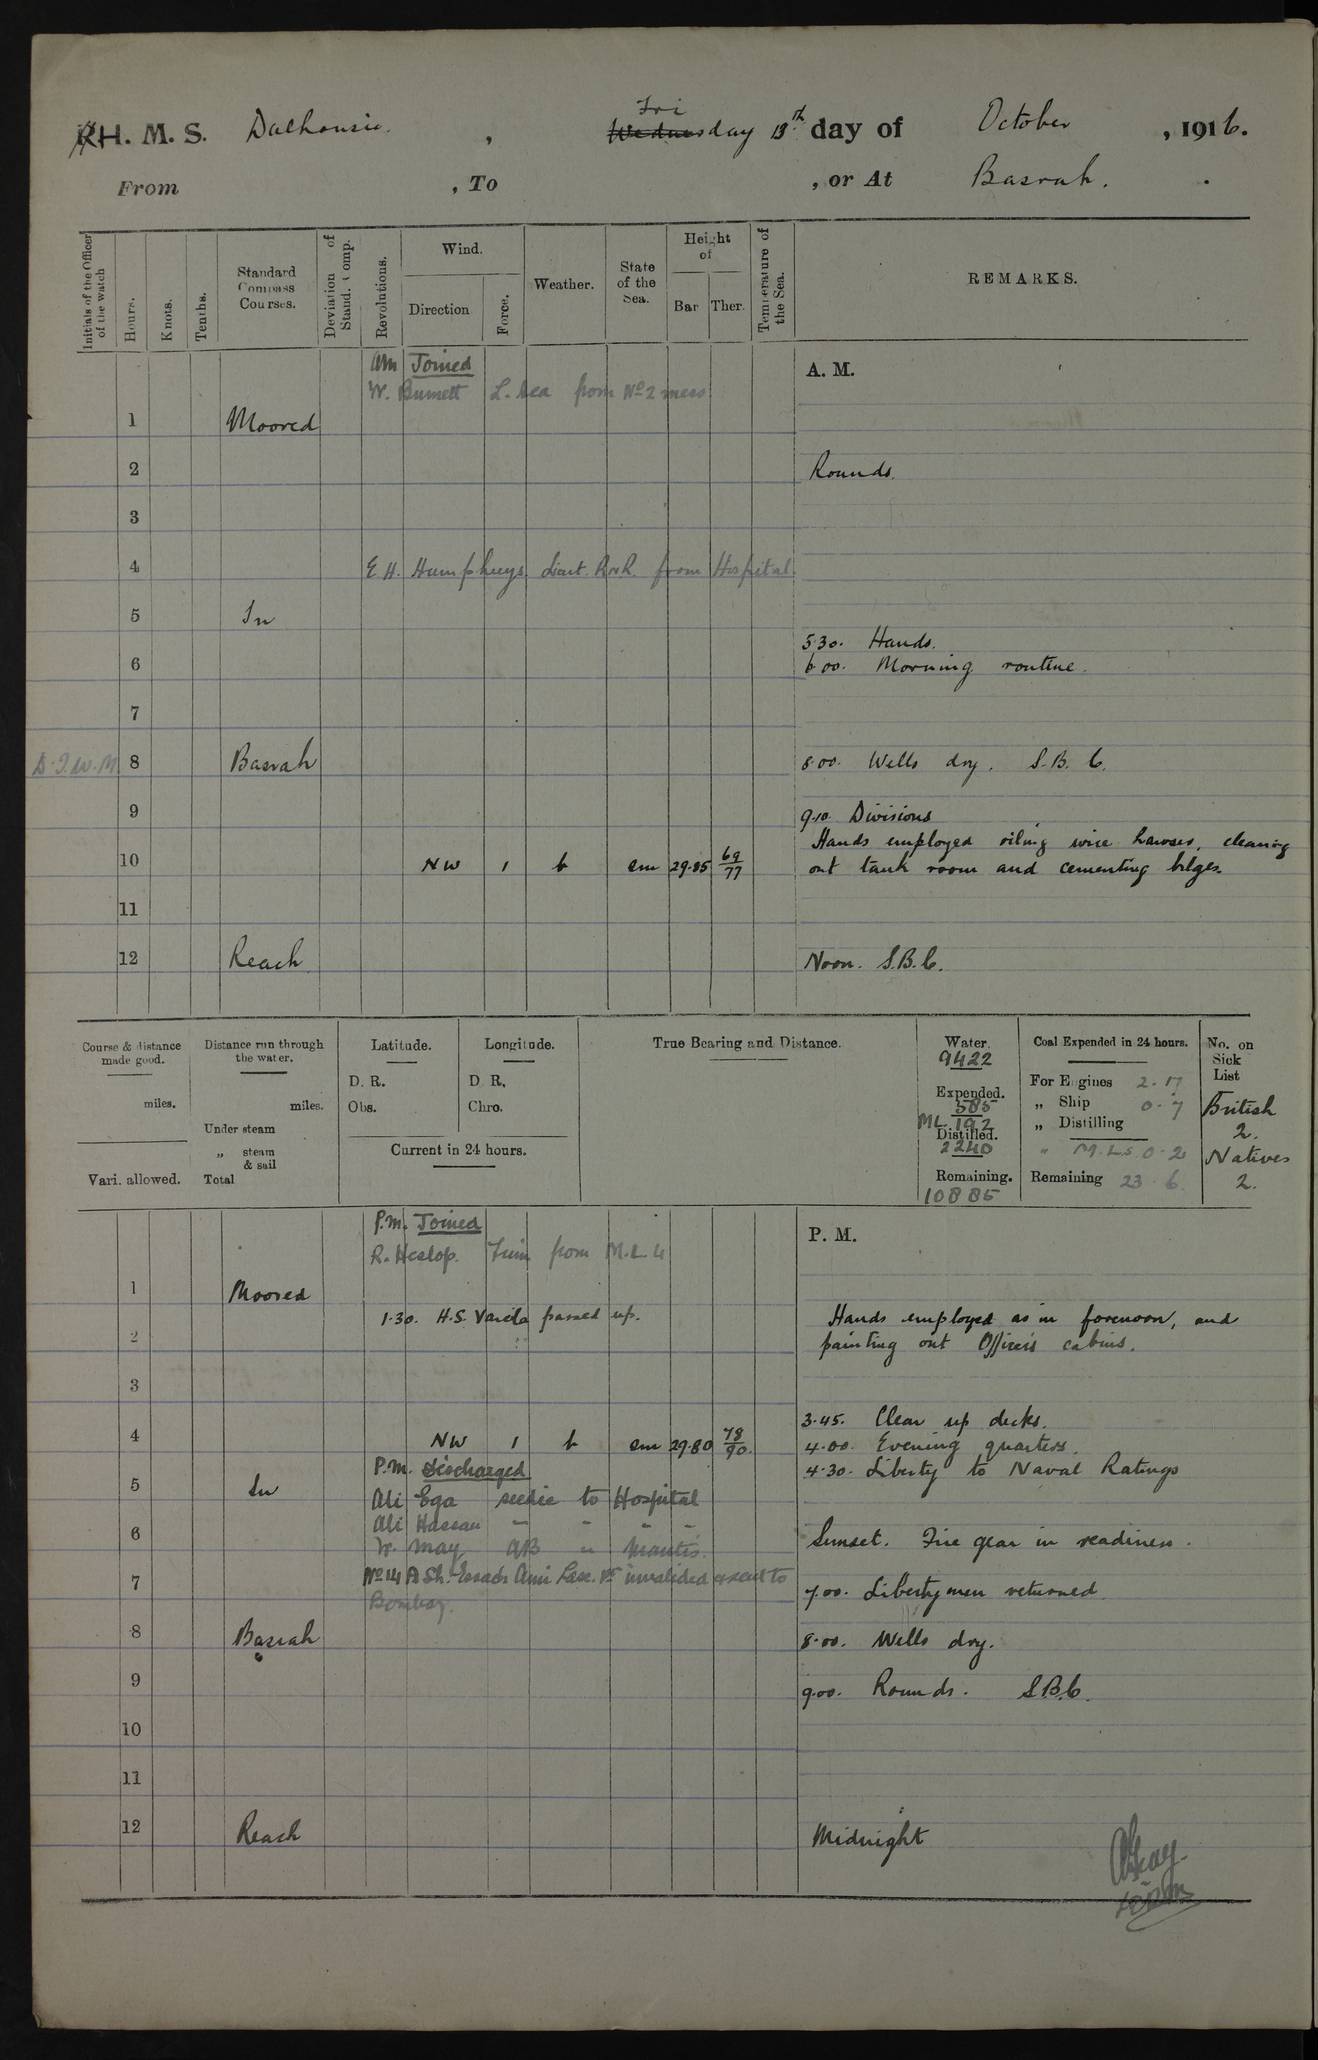 Fri
H. M. S. Dalhousie. , Wednesday 13th day of October , 1916.
From , To , or At Basrah.
Initials of the Officer of the watch
Hours.
Knots.
Tenths.
Standard Compass Courses.
Deviation of Stand. Comp.
Revolutions.
Wind.
Direction
Force.
Weather.
State of the Sea.
Height of
Bar
Ther.
Temperature of the Sea.
REMARKS.
AM Joined
A. M.
W. Burnett L. Sea from No 2 mess
1 Moored
2 Rounds.
3
4 E. H. Humphreys Lieut. RNR from Hospital
5 In
5.30. Hands.
6 6.00. Morning routine.
7
8 Basrah 8.00. Wells dry. S.B.C.
9 9.10. Divisions
Hands employed oiling wire hawsers, cleaning
10 NW 1 b sm 29.85 69/77 out tank room and cementing bilges.
11
12 Reach Noon. S.B.C.
Course & distance made good.
miles.
Vari. allowed.
Distance run through the water.
miles.
Under steam
„ steam & sail
Total
Latitude.
D. R.
Obs.
Longitude.
D. R.
Chro.
Current in 24 hours.
True Bearing and Distance.
Water.
9422
Expended.
585
ML. 192
Distilled.
2240
Remaining.
10885
Coal Expended in 24 hours.
For Engines 2.17
„ Ship 0.7
„ Distilling
" M.Ls. 0.2
Remaining 23.6
No. on Sick List
British
2.
Natives
2.
P.M. Joined
P. M.
R. Heslop. from M.L. 4
1 Moored
1.30. H.S. Varela passed up.
Hands employed as in forenoon, and
2 painting out Officers cabins.
3
3.45. Clear up decks.
4 NW 1 b sm 29.80 78/90. 4.00. Evening quarters.
P.M. Discharged
4.30. Liberty to Naval Ratings
5 In
Ali Ega seedie to Hospital
Ali Hassan " " " "
6 Sunset. Fire gear in readiness.
W. May AB " Mantis.
No 14 A Sh. Amir Lasc. invalided & sent to
7 7.00. Liberty men returned.
Bombay.
8 Basrah 8.00. Wells dry.
9 9.00. Rounds. S.B.C.
10
11
12 Reach Midnight